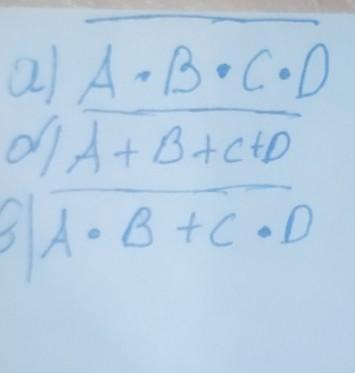 а) A · B · C · D
б) A + B + C + D
в) A · B + C · D